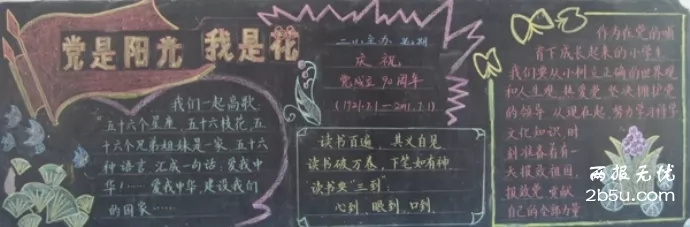 党是阳光 我是花
我们一起高歌
五十六个星座,五十六枝花,五
十六个兄弟姐妹是一家,五十六
种语言,汇成一句话,爱我中
华!……爱我中华,建设我们
的国家……
二(二)主办 第2期
庆祝
党成立90周年
(1921.7.1—2011.7.1)
读书百遍,其义自见
读书破万卷,下笔如有神
读书要“三到”:
心到、眼到、口到
作为在党的哺
育下成长起来的小学生
我们要从小树立正确的世界观
和人生观,热爱党,坚决拥护党
的领导,从现在起,努力学习科学
文化知识,时
刻准备着有一
天报效祖国,
报效党,贡献
自己的全部力量
两报无忧
2b5u.com